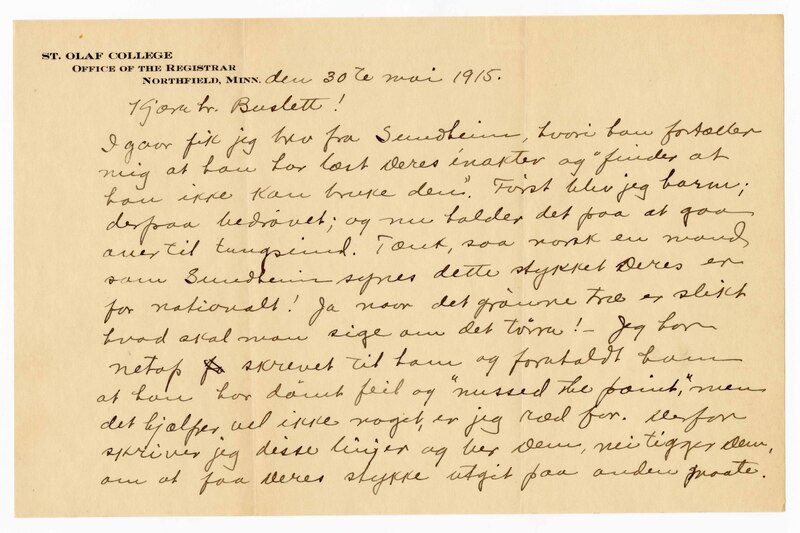 ST. OLAF COLLEGE
OFFICE OF THE REGISTRAR
NORTHFIELD, MINN. den 30te mai 1915.
Kjære hr. Buslett!
I gaar fik jeg brev fra Sundheim, hvori han fortæller
mig at han har læst Deres énakter og "finder at
han ikke kan bruke den". Först blev jeg harm;
derpaa bedrøvet; og nu holder det paa at gaa
over til tungsind. Tænk, saa norsk en mand
som Sundheim synes dette stykket Deres er
for nationalt! Ja naar det grönne træ er slikt
hvad skal man sige om det törra! – Jeg har
netop skrevet til ham og foreholdt ham
at han har dömt feil og "missed the point," men
det hjælper vel ikke noget, er jeg ræd for. Derfor
skriver jeg disse linjer og ber Dem, nei tigger Dem,
om at faa Deres stykke utgit paa anden maate.